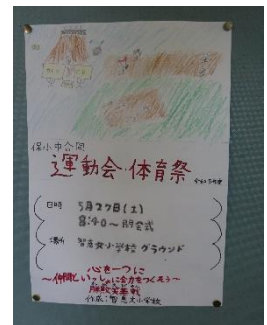 保小中合同
運動会・体育祭 令和5年度
日時 5月27日(土)
8:40〜 開会式
場所 智恵文小学校 グラウンド
心を一つに
〜仲間といっしょに全力をつくそう〜
作成:智恵文小学校